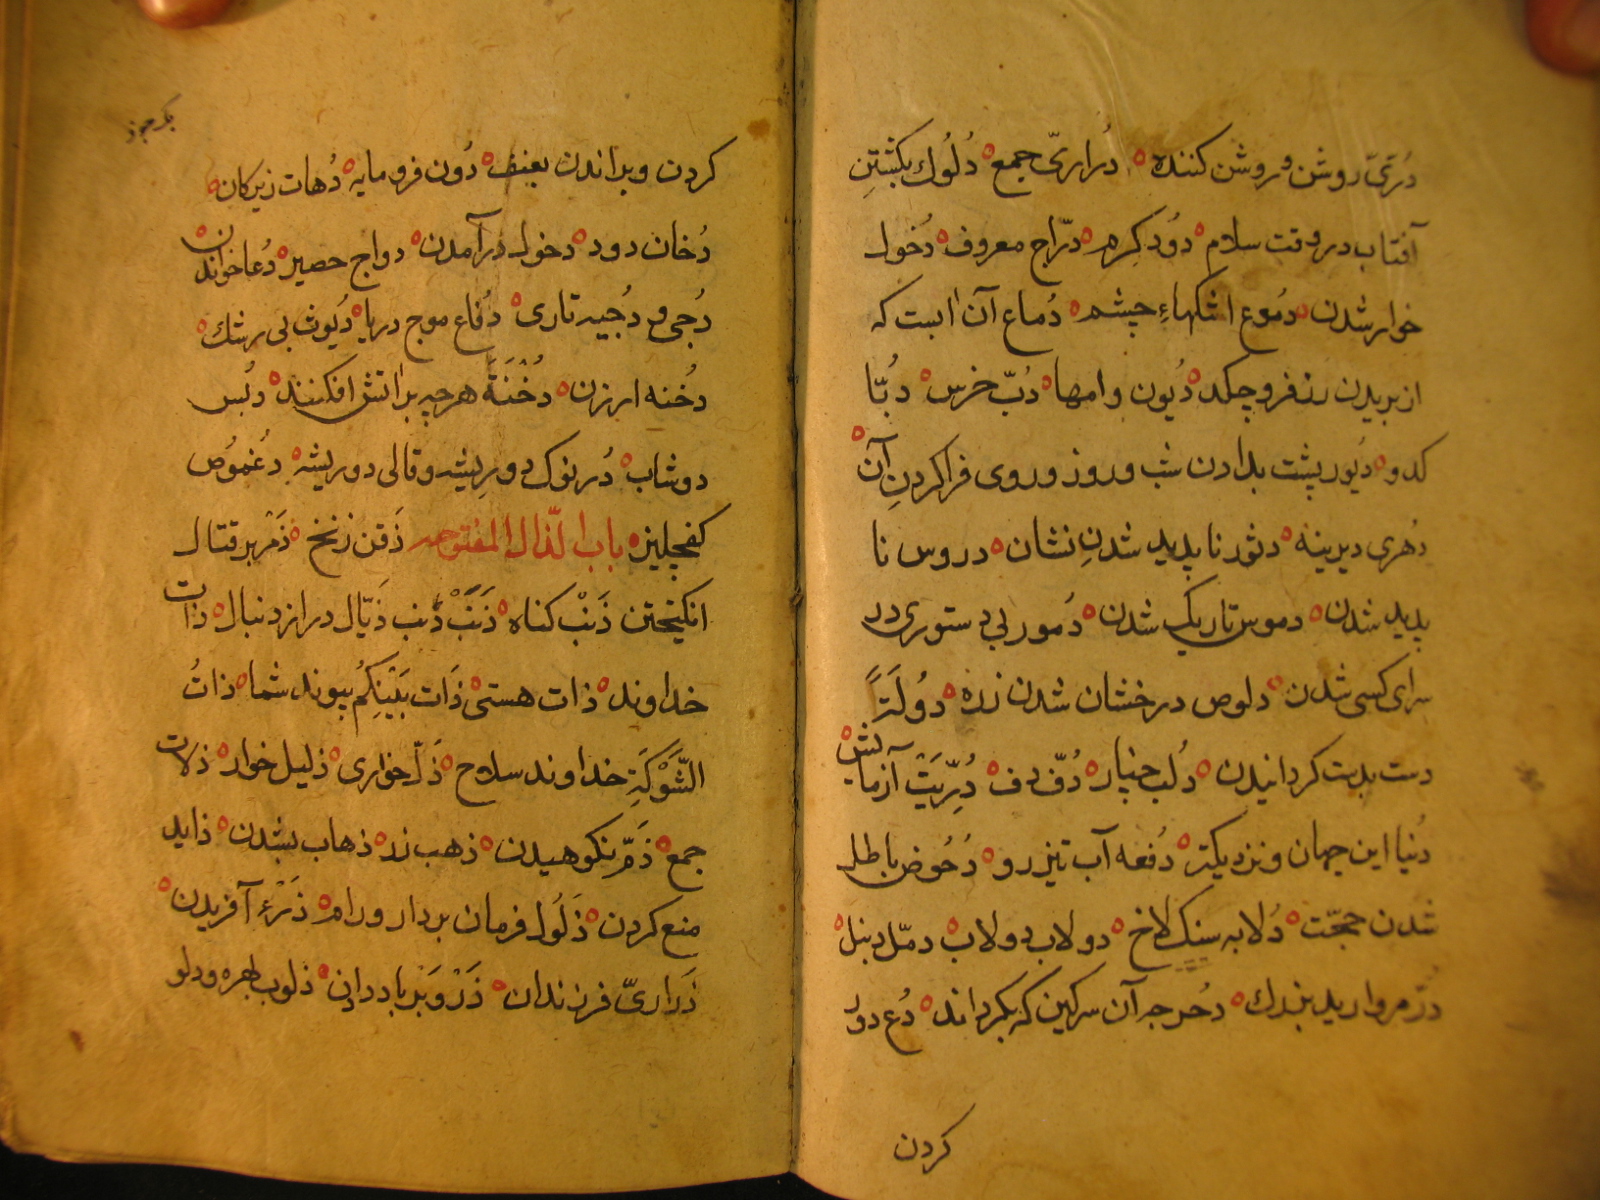 دُرّیّ روشن و روشن کننده دُراریّ جمع دُلُوك بکشتنِ
آفتاب در وقت سلام دُود کِرم درّاج معروف دُخول
خوار شدن دُموع اشکهاءِ چشم دُماع آن آبست که
از بریدن رز فرو چکد دُیون وامها دُبّ خرس دُبّا
کدو دُبور پشت بدادن شب و روز و روی فرا کردنِ آن
دُهری دیرینه دثور ناپدید شدنِ نشان دروس نا
پدید شدن دموس تاریک شدن دُمور بی دستوری در
سرای کسی شدن دلوص درخشان شدن زره دُولَتً
دست بدست کردانیدن دُلب چنار دُفّ دف دُرِّبَتْ آزمایش
دُنیا این جهان و نزدیکتر دُفعه آب تیز رو دُحُوض باطل
شدن حجّت دُلابه سنک لاخ دولاب دولاب دمّل دبنل
دُرّ مروارید بزرك دُحرجه آن سرکین که بکرداند دُعّ دور
کردن
کردن و براندن بعنف دُون فرومایه دُهات زیرکان
دُخان دود دخول درآمدن دواج حصیر دُعا خواندن
دُجی و دُجیه تاری دُفاع موج دریا دیُوث بی رشك
دُخنه ارزن دُخْنَةً هرچه بر آتش افکنند دبُس
دوشاب دُرنوک دو ریشه و قالی دو ریشه دُعْمُوُص
کفچلیز باب الذّال المفتوحه ذَقن زنخ ذَمْر بر قتال
انکیختن ذَنْب کناه ذَنَبْ دُنب ذَیّال دراز دنبال ذات
خداوند ذات هستی ذَات بَیْنِکُم پیوند شما ذاتُ
الشَّوْکَةِ خداوند سلاح ذَلّ خواری ذلیل خوار ذلات
جمع ذَمّ نکوهیدن ذهب زر ذهاب بشدن ذاید
منع کردن ذَلُول فرمان بردار و رام ذَرْءْ آفریدن
ذَراریّ فرزندان ذَرْو بَر باد دادن ذلوب بهره و دلو